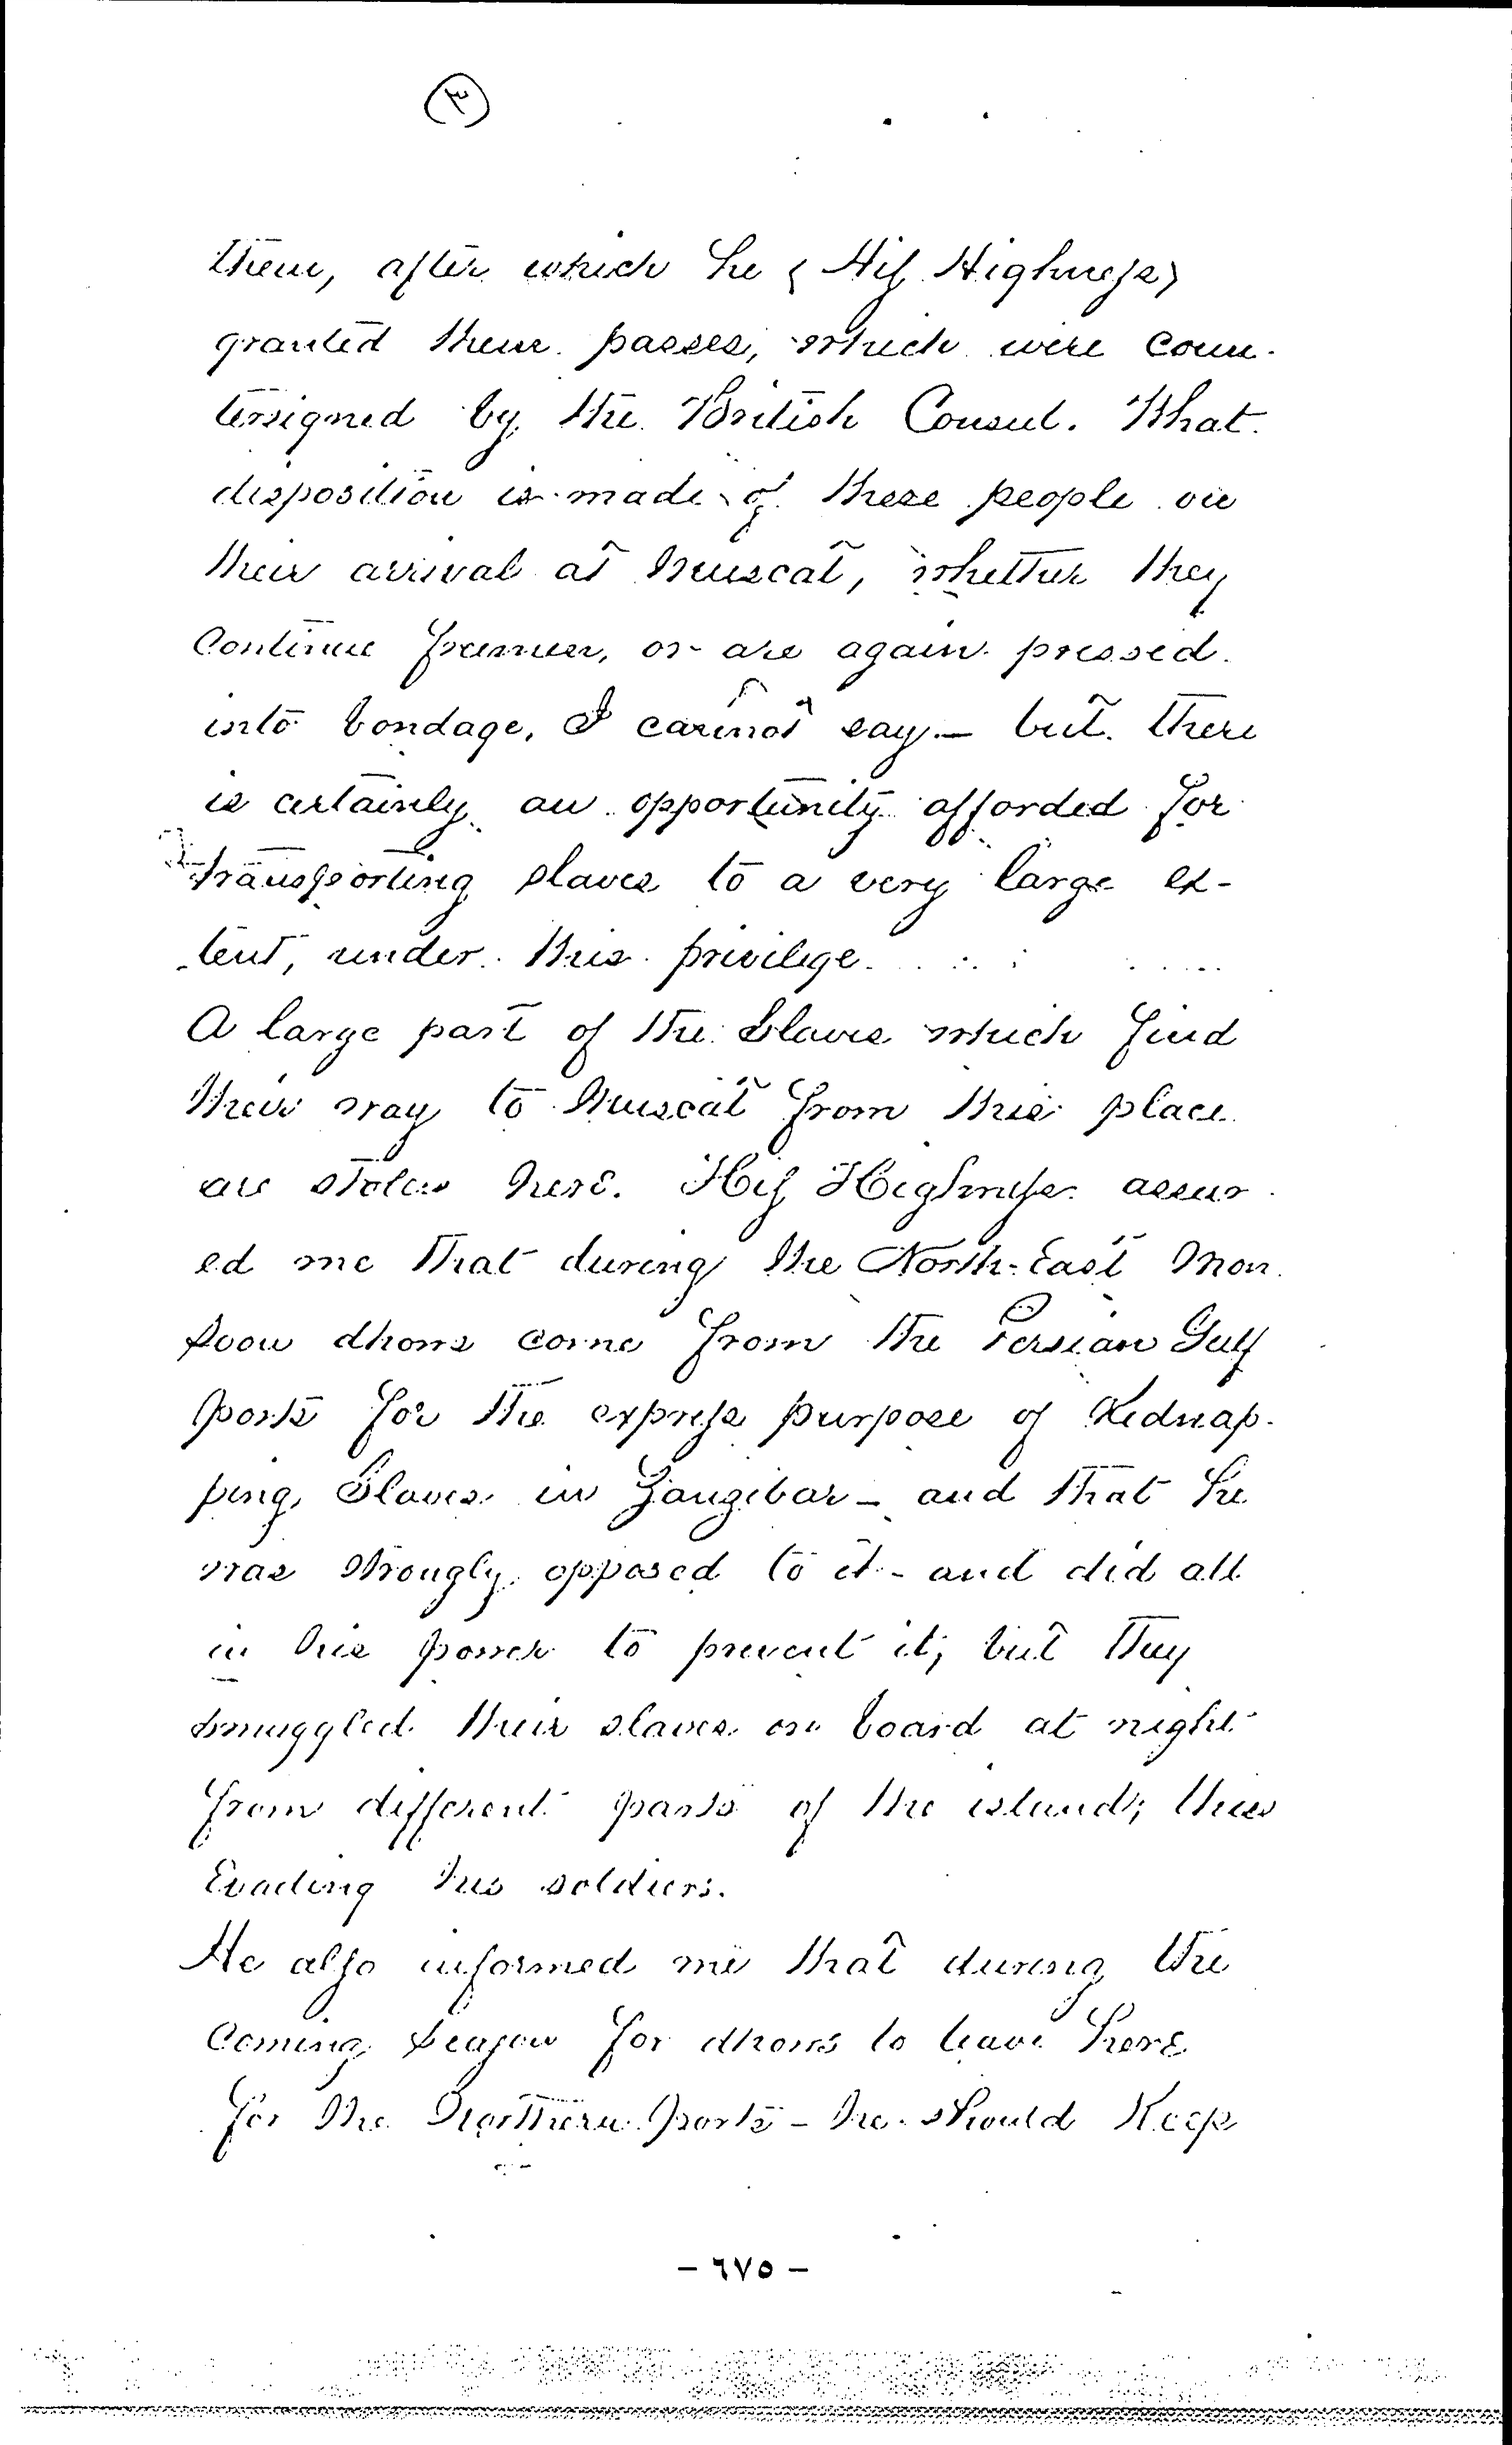 (٣)
them, after which he (His Highness)
granted them passes, which were coun-
tersigned by the British Consul. What
disposition is made of these people on
their arrival at Muscat, whether they
continue freemen, or are again pressed
into bondage, I cannot say — but there
is certainly an opportunity afforded for
transporting slaves to a very large ex-
tent, under this privilege.
A large part of the Slaves which find
their way to Muscat from this place
are stolen here. His Highness assur-
ed me that during the North-East Mon-
soon dhows come from the Persian Gulf
ports for the express purpose of Kidnap-
ping Slaves in Zanzibar — and that he
was strongly opposed to it — and did all
in his power to prevent it; but they
smuggled their slaves on board at night
from different parts of the island; thus
Evading his soldiers.
He also informed me that during the
Coming Season for dhows to leave here
for the Northern ports — he should Keep
– ٦٧٥ –